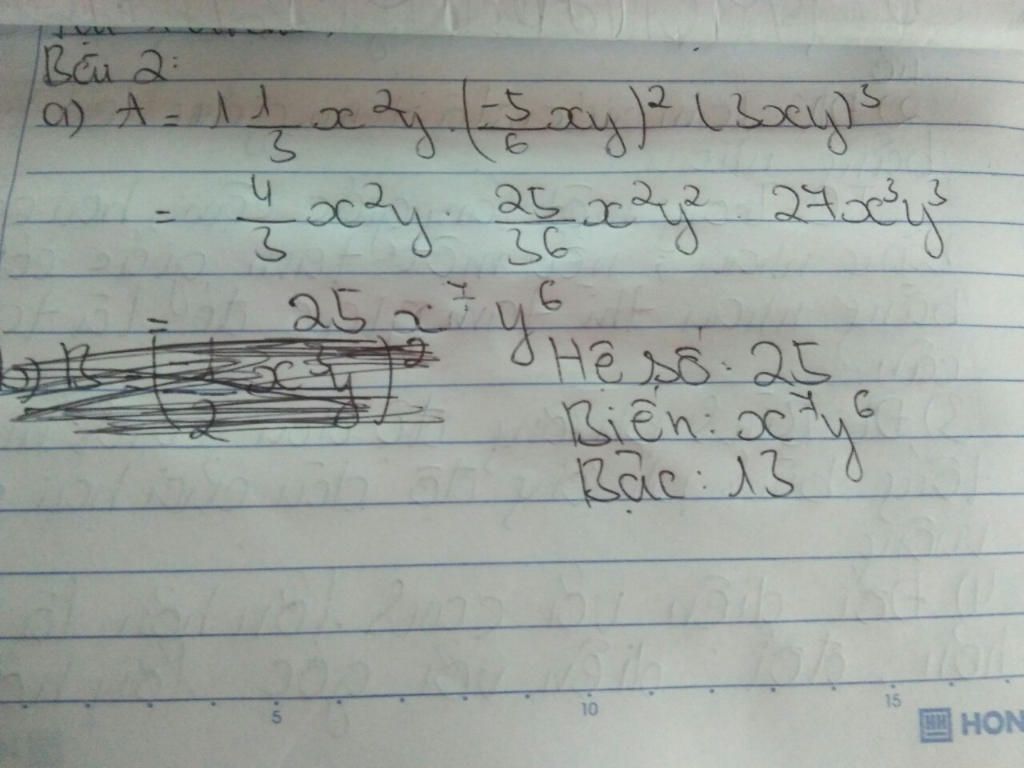 Bài 2:
a) A = 1 1/3 x²y · (-5/6 xy)² (3xy)³
= 4/3 x²y · 25/36 x²y² · 27x³y³
= 25 x⁷ y⁶
b) B (1/2 x³y)²
Hệ số: 25
Biến: x⁷y⁶
Bậc: 13
5 10 15
HON